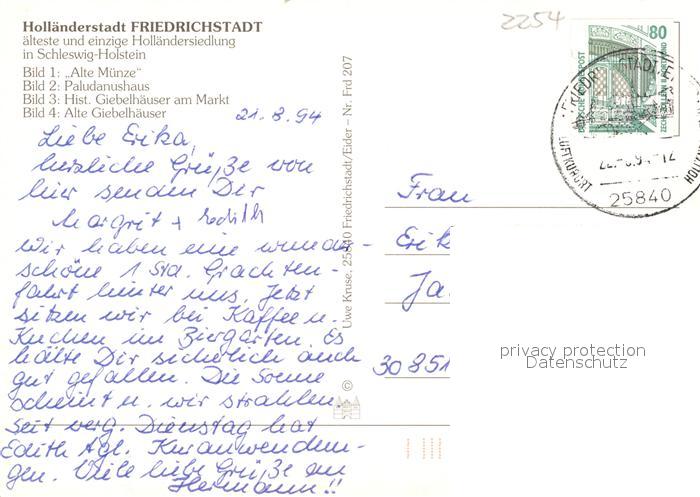 Holländerstadt FRIEDRICHSTADT
älteste und einzige Holländersiedlung
in Schleswig-Holstein
Bild 1: „Alte Münze“
Bild 2: Paludanushaus
Bild 3: Hist. Giebelhäuser am Markt
Bild 4: Alte Giebelhäuser
21.8.94
Liebe Erika,
herzliche Grüße von
hier senden Dir
Margrit + Edith
Wir haben eine wunder-
schöne 1 Std. Grachten-
fahrt hinter uns. Jetzt
sitzen wir bei Kaffee u.
Kuchen im Biergarten. Es
hätte Dir sicherlich auch
gut gefallen. Die Sonne
scheint u. wir strahlen.
Seit verg. Dienstag hat
Edith tgl. Kuranwendun-
gen. Viele liebe Grüße an
Hermann!!
Uwe Kruse, 25840 Friedrichstadt/Eider – Nr. Frd 207
©
2254
80
DEUTSCHE BUNDESPOST
ZECHE ZOLLERN II DORTMUND
LUFTKURORT
25840
Frau
Erik
Ja
30851
privacy protection
Datenschutz